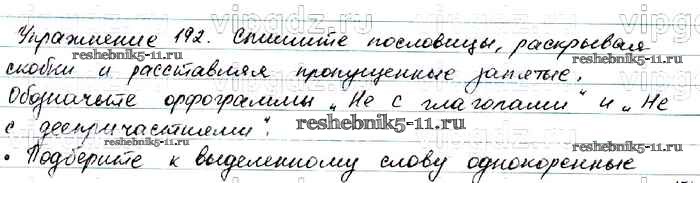 vipgdz.ru
Упражнение 192. Спишите пословицы, раскрывая
reshebnik5-11.ru
reshebnik5-11.ru
скобки и расставляя пропущенные запятые.
Обозначьте орфограммы „Не с глаголами“ и „Не
с деепричастиями“.
reshebnik5-11.ru
• Подберите к выделенному слову однокоренные